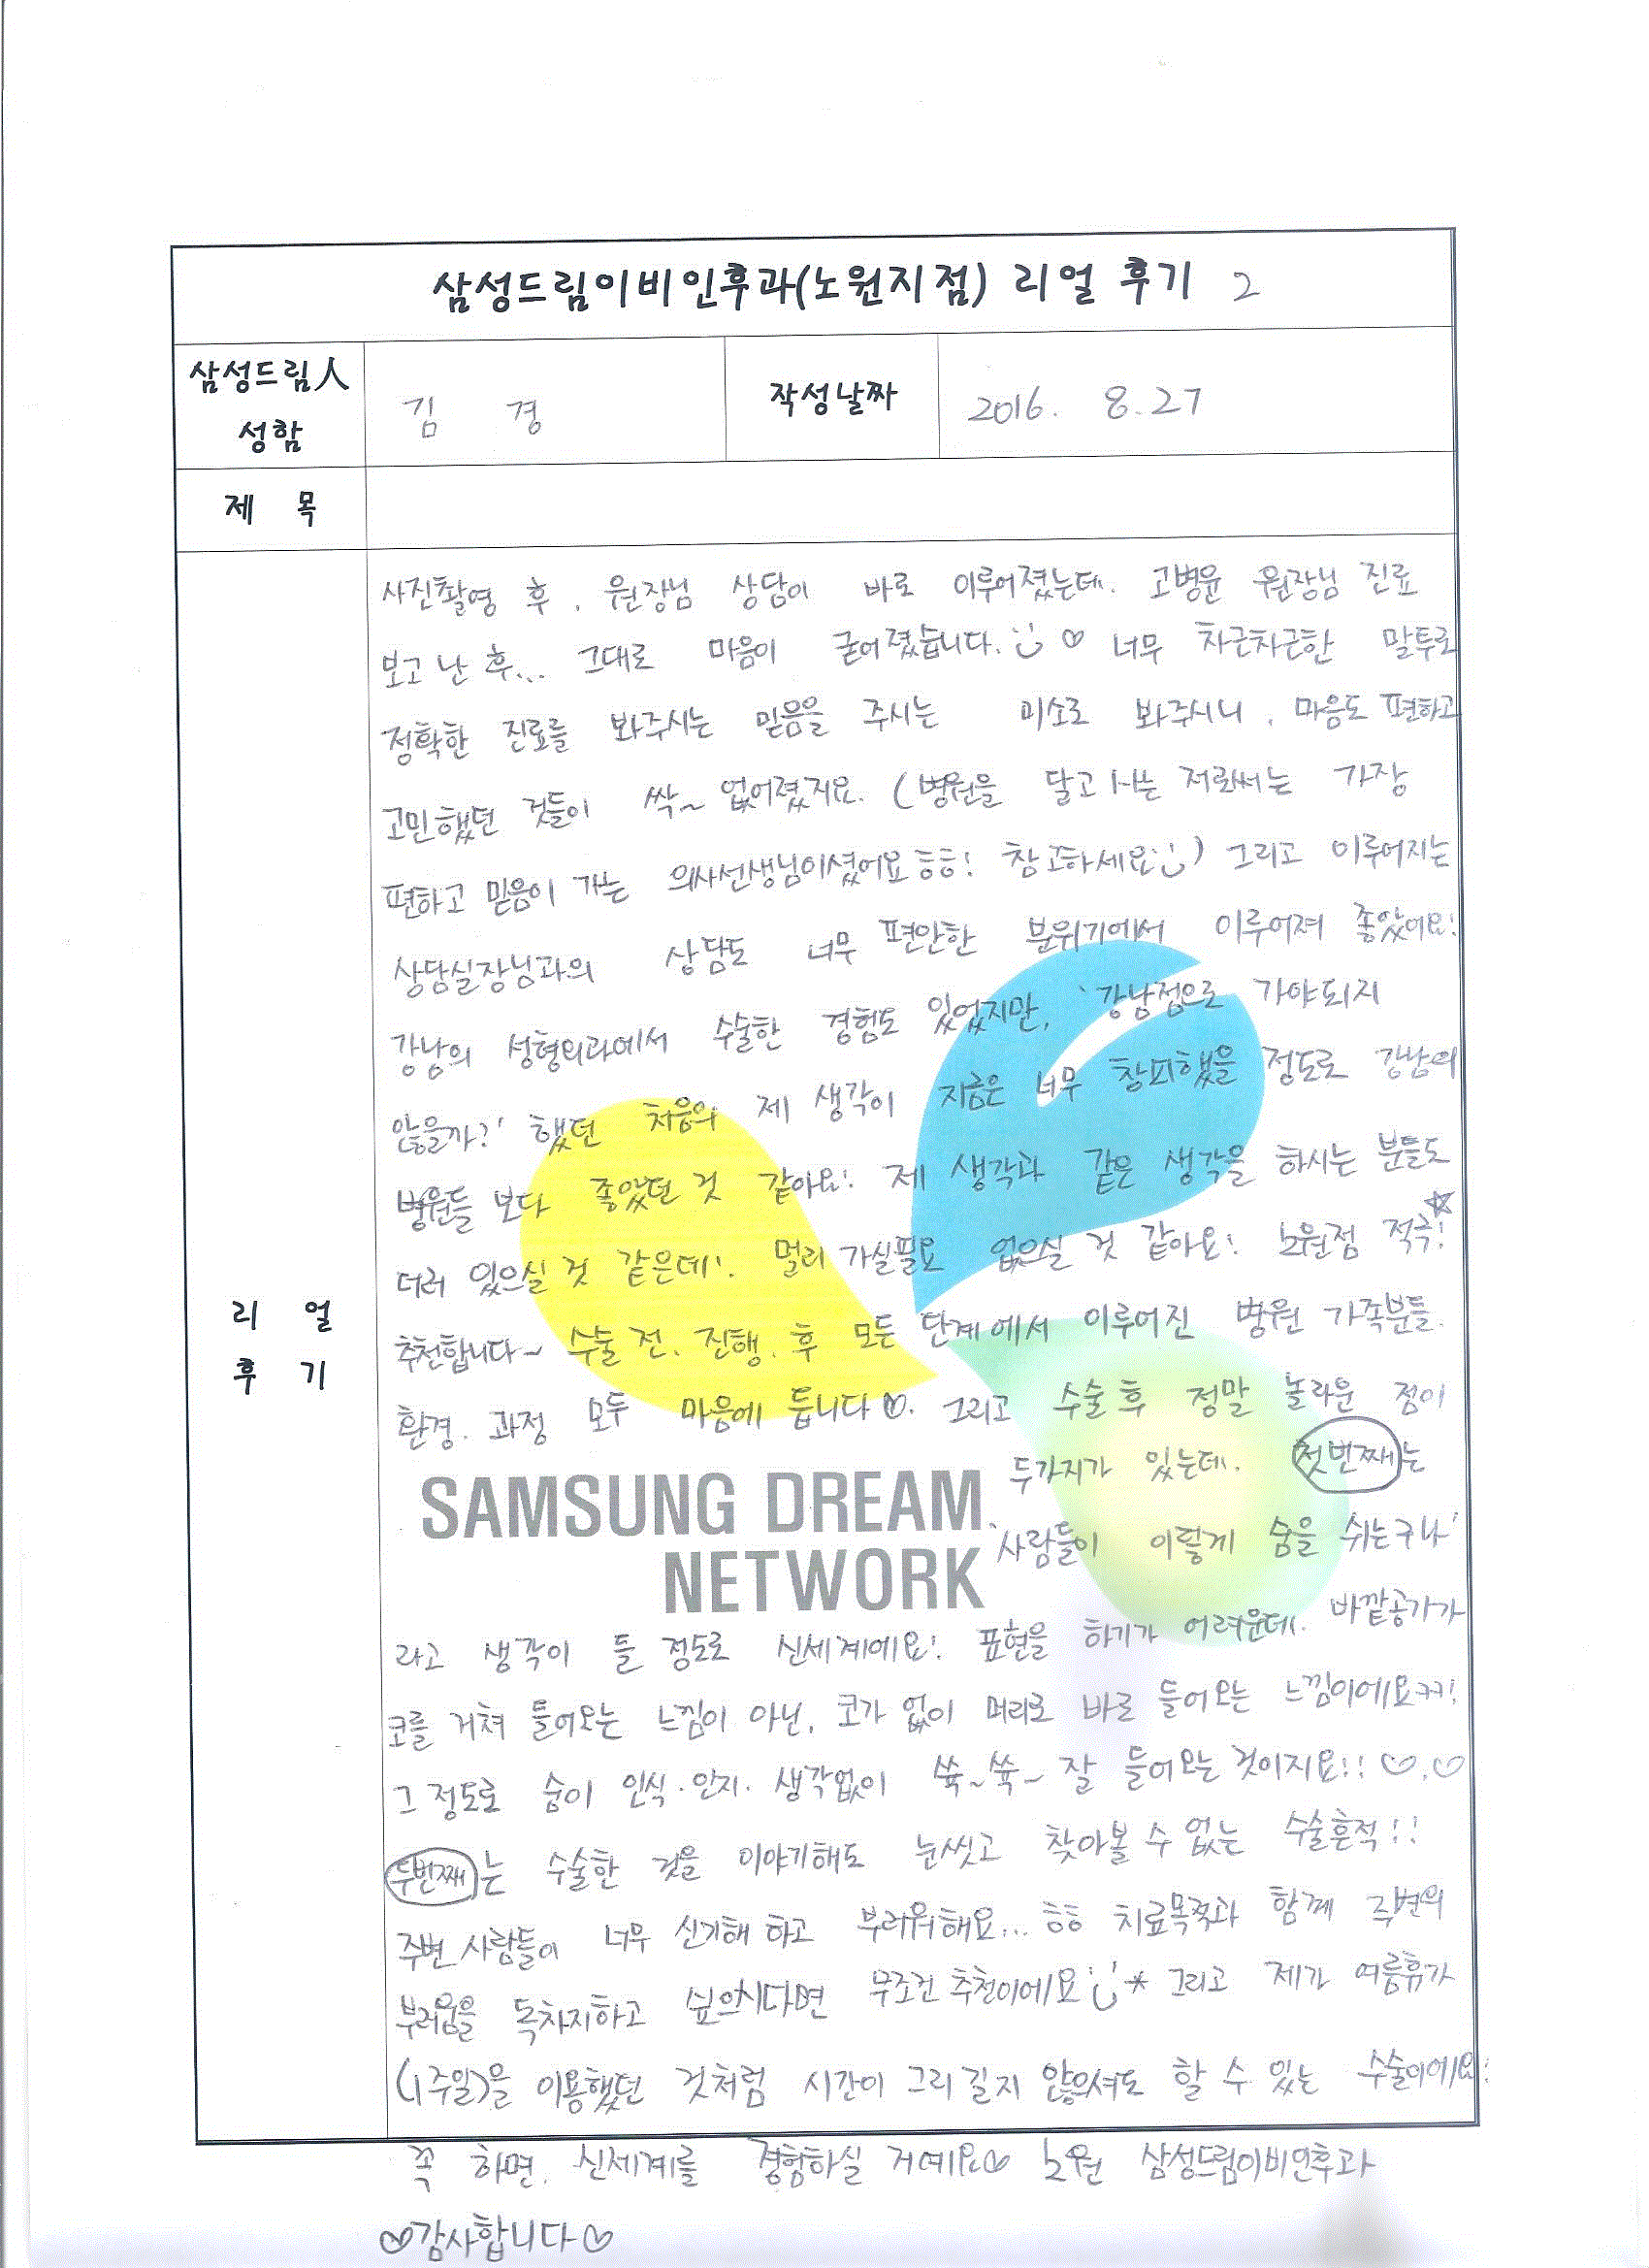 삼성드림이비인후과(노원지점) 리얼 후기 2
삼성드림人
성함
김 경
작성날짜
2016. 8.27
제 목
리 얼
후 기
사진촬영 후, 원장님 상담이 바로 이루어졌는데. 고병윤 원장님 진료
보고 난 후... 그대로 마음이 굳어졌습니다. ♡ 너무 차근차근한 말투로
정확한 진료를 봐주시는 믿음을 주시는 미소로 봐주시니, 마음도 편하고
고민했던 것들이 싹~ 없어졌지요. (병원을 달고 사는 저로써는 가장
편하고 믿음이 가는 의사선생님이셨어요ㅎㅎ! 참고하세요) 그리고 이루어지는
상담실장님과의 상담도 너무 편안한 분위기에서 이루어져 좋았어요!
강남의 성형외과에서 수술한 경험도 있었지만, '강남점으로 가야되지
않을까?' 했던 처음의 제 생각이 지금은 너무 창피했을 정도로 강남의
병원들 보다 좋았던 것 같아요! 제 생각과 같은 생각을 하시는 분들도
더러 있으실 것 같은데!. 멀리 가실필요 없으실 것 같아요! 노원점 적극!☆
추천합니다~ 수술 전. 진행. 후 모든 단계에서 이루어진 병원 가족분들.
환경. 과정 모두 마음에 듭니다♡. 그리고 수술후 정말 놀라운 점이
두가지가 있는데. 첫번째는
SAMSUNG DREAM
NETWORK
'사람들이 이렇게 숨을 쉬는구나'
라고 생각이 들 정도로 신세계에요! 표현을 하기가 어려운데. 바깥공기가
코를 거쳐 들어오는 느낌이 아닌, 코가 없이 머리로 바로 들어오는 느낌이에요ㅋㅋ!
그 정도로 숨이 인식·인지·생각없이 쑥~쑥~ 잘 들어오는 것이지요!! ♡.♡
두번째는 수술한 것을 이야기해도 눈씻고 찾아볼 수 없는 수술흔적!!
주변 사람들이 너무 신기해 하고 부러워해요... ㅎㅎ 치료목적과 함께 주변의
부러움을 독차지하고 싶으시다면 무조건 추천이에요* 그리고 제가 여름휴가
(1주일)을 이용했던 것처럼 시간이 그리 길지 않으셔도 할 수 있는 수술이에요!
꼭 하면. 신세계를 경험하실 거예요♡ 노원 삼성드림이비인후과
♡감사합니다♡